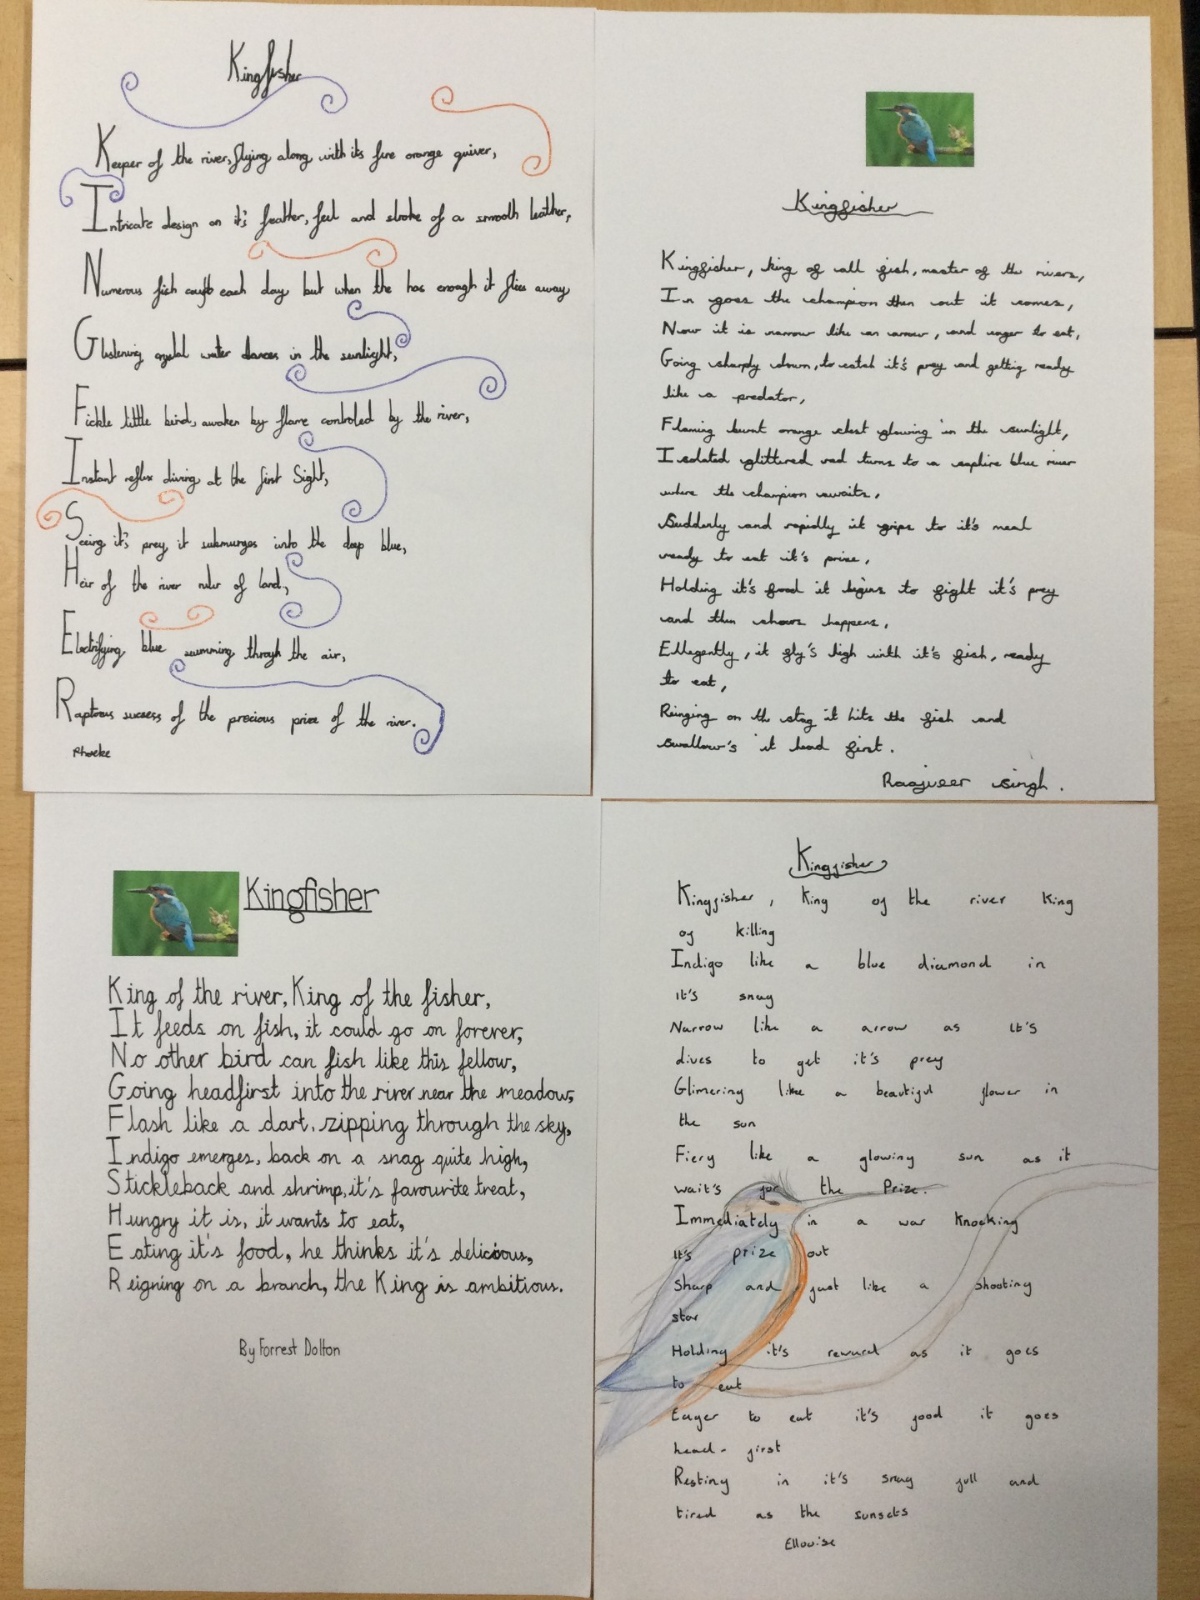 Kingfisher
Keeper of the river, flying along with its fire orange quiver,
Intricate design on it's feather, feel and stroke of a smooth leather,
Numerous fish caught each day but when the has enough it flies away
Glistening crystal water dances in the sunlight,
Fickle little bird, awoken by flame controled by the river,
Instant reflex diving at the first Sight,
Seeing it's prey it submurges into the deep blue,
Heir of the river ruler of land,
Electrifying blue swimming through the air,
Raptorous success of the precious prize of the river.
Phoebe
Kingfisher
Kingfisher, king of all fish, master of the rivers,
In goes the champion then out it comes,
Now it is narrow like an arrow, and eager to eat,
Going sharply down, to catch it's prey and getting ready
like a predator,
Flaming burnt orange chest glowing in the sunlight,
Isolated glittered rod turns to a saphire blue river
where the champion awaits,
Suddenly and rapidly it grips to it's meal
ready to eat it's prize,
Holding it's food it begins to fight it's prey
and then chaos happens,
Ellegently, it fly's high with it's fish, ready
to eat,
Reinging on the stag it hits the fish and
swallow's it head first.
Raajveer singh.
Kingfisher
King of the river, King of the fisher,
It feeds on fish, it could go on forever,
No other bird can fish like this fellow,
Going headfirst into the river near the meadows,
Flash like a dart, zipping through the sky,
Indigo emerges, back on a snag quite high,
Stickleback and shrimp, it's favourite treat,
Hungry it is, it wants to eat,
Eating it's food, he thinks it's delicious,
Reigning on a branch, the King is ambitious.
By Forrest Dolton
Kingfisher
Kingfisher, King of the river King
of killing
Indigo like a blue diamond in
it's snag
Narrow like a arrow as it's
dives to get it's prey
Glimering like a beautiful flower in
the sun
Fiery like a glowing sun as it
wait's for the Prize.
Immediately in a war Knocking
it's prize out
Sharp and just like a shooting
star
Holding it's reward as it goes
to eat
Eager to eat it's food it goes
head-first
Resting in it's snag full and
tired as the sunsets
Ellouise